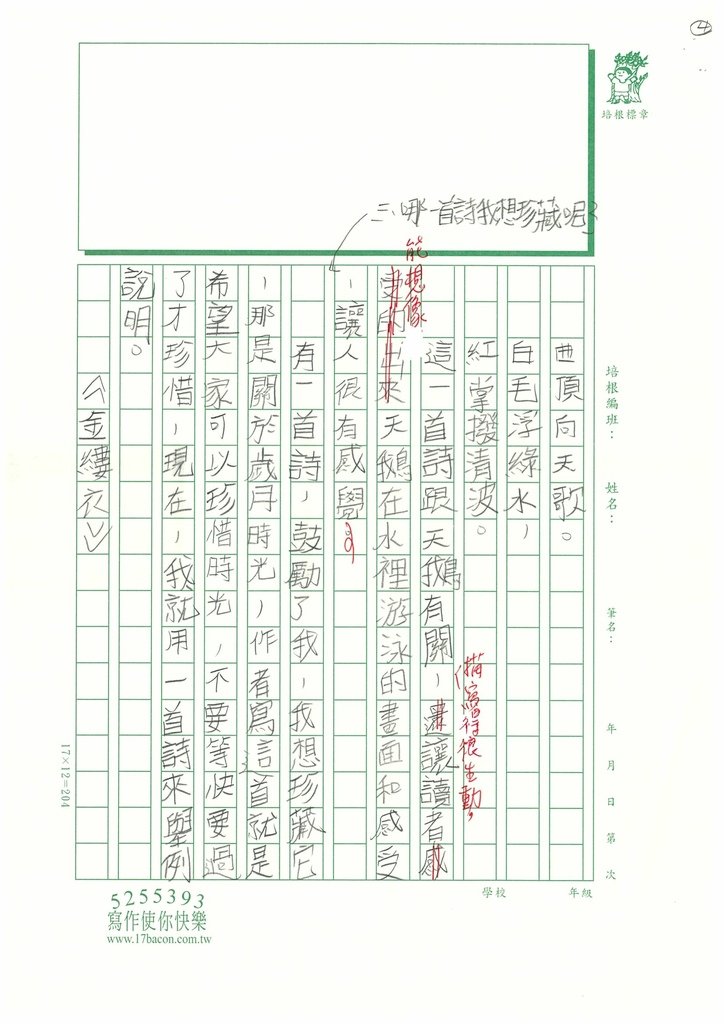 ④
培根標章
三、哪一首詩我想珍藏呢？
培根編班：　姓名：　筆名：　年　月　日　第　次
曲頂向天歌。
白毛浮綠水，
紅掌撥清波。
這一首詩跟天鵝有關，讓讀者感
描寫得很生動，
能想像
受的出來天鵝在水裡游泳的畫面和感受
，讓人很有感覺。
有一首詩，鼓勵了我，我想珍藏它
，那是關於歲月時光，作者寫這首就是
希望大家可以珍惜時光，不要等快要過
了才珍惜，現在，我就用一首詩來舉例
說明。
〈金縷衣〉
17×12=204
學校　年級
5255393
寫作使你快樂
www.17bacon.com.tw